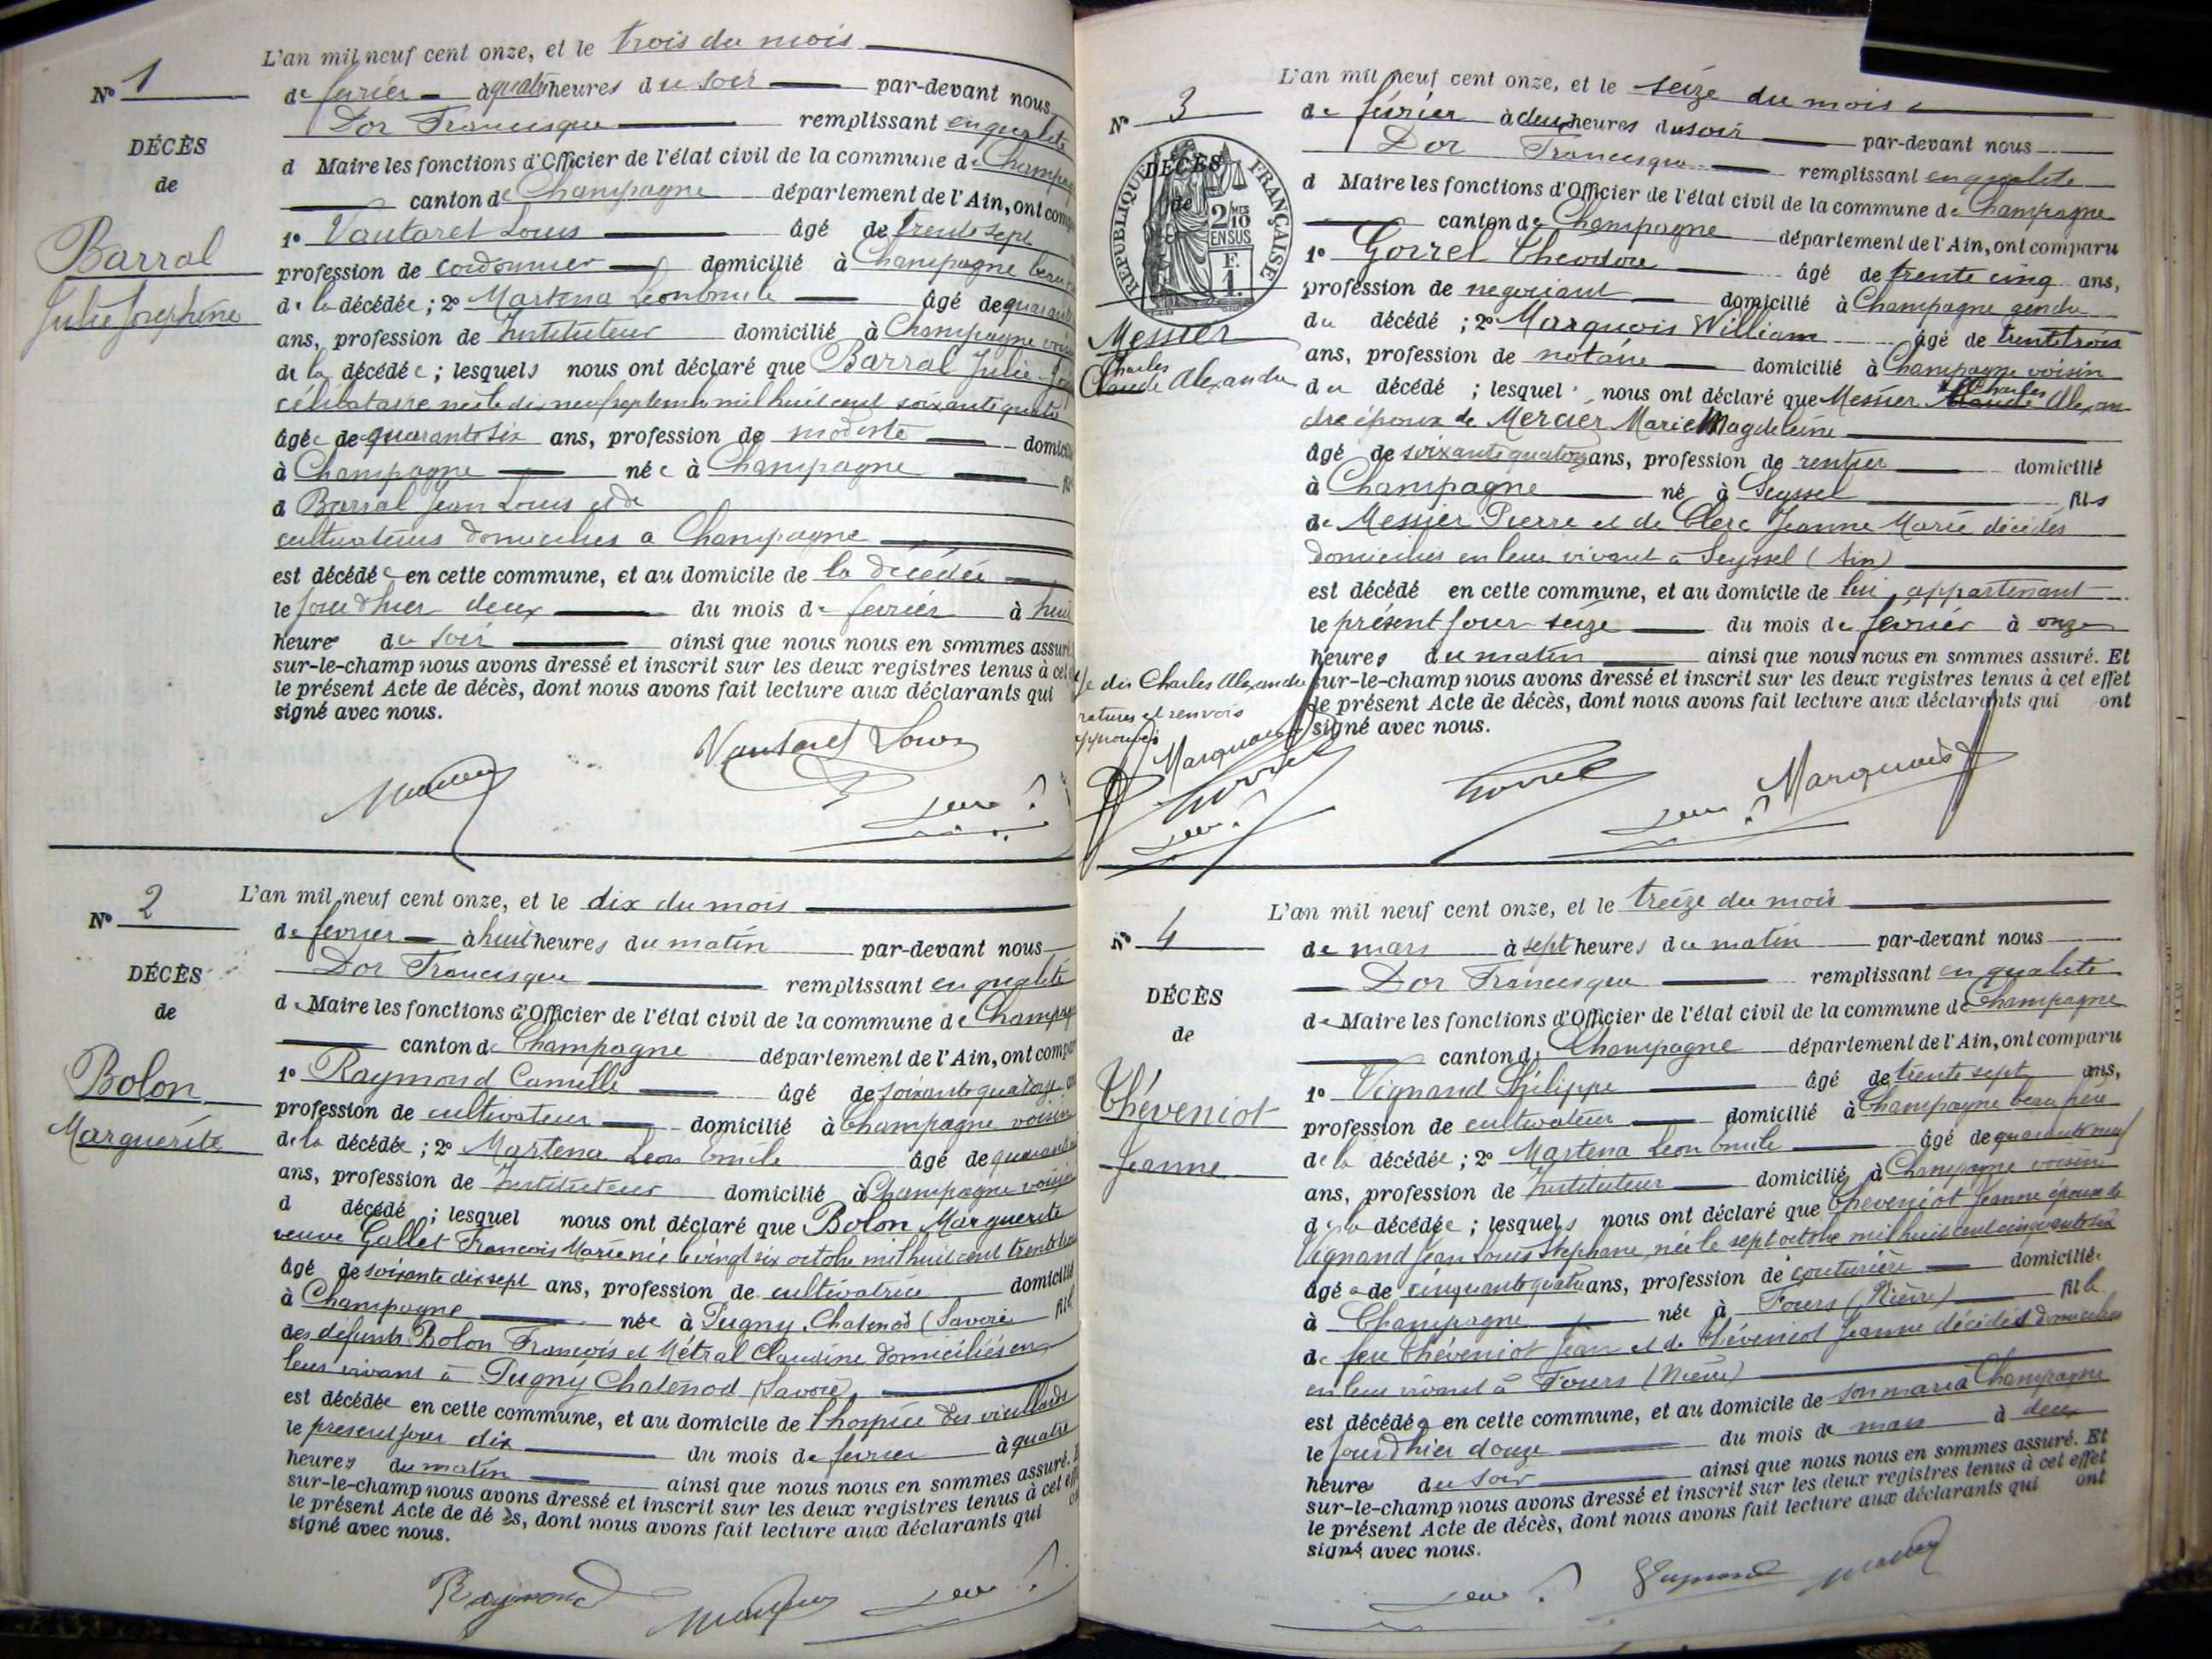 L'an mil neuf cent onze, et le trois du mois
N° 1
de février à quatre heures du soir par-devant nous
Dor Francisque remplissant en qualité
DÉCÈS
d Maire les fonctions d'Officier de l'état civil de la commune de Champagne
de
canton de Champagne département de l'Ain, ont comparu
1° Vautaret Louis âgé de trente sept
Barral
Julie Joséphine
profession de cordonnier domicilié à Champagne beau
de la décédée ; 2° Martena Leon Emile âgé de quarante
ans, profession de Instituteur domicilié à Champagne voisin
de la décédée ; lesquels nous ont déclaré que Barral Julie
célibataire née le dix neuf septembre mil huit cent soixante quatre
âgée de quarante six ans, profession de modiste domicil
à Champagne née à Champagne
d Barral Jean Louis et de
cultivateurs domiciliés a Champagne
est décédée en cette commune, et au domicile de la décédée
le jour d'hier deux du mois de fevrier à huit
heure du soir ainsi que nous nous en sommes assuré.
sur-le-champ nous avons dressé et inscrit sur les deux registres tenus à cet
le présent Acte de décès, dont nous avons fait lecture aux déclarants qui
signé avec nous.
Vautaret Louis
L'an mil neuf cent onze, et le dix du mois
N° 2
de fevrier à huit heures du matin par-devant nous
Dor Francisque remplissant en qualité
DÉCÈS
de Maire les fonctions d'Officier de l'état civil de la commune de Champagne
de
canton de Champagne département de l'Ain, ont comparu
1° Raymond Camille âgé de soixante quatorze
Bolon
Marguerite
profession de cultivateur domicilié à Champagne voisin
de la décédée ; 2° Martena Leon Emile âgé de quarante
ans, profession de Instituteur domicilié à Champagne voisin
d décédé ; lesquel nous ont déclaré que Bolon Marguerite
veuve Gallet Francois Marie née le vingt six octobre mil huit cent trente
âgé de soixante dix sept ans, profession de cultivatrice domicilié
à Champagne née à Pugny Chatenod (Savoie fille
des défunts Bolon Francois et Métral Claudine domiciliés en
leur vivant à Pugny Chatenod (Savoie)
est décédée en cette commune, et au domicile de l'hospice des vieillards
le present jour dix du mois de fevrier à quatre
heures du matin ainsi que nous nous en sommes assuré.
sur-le-champ nous avons dressé et inscrit sur les deux registres tenus à cet
le présent Acte de décès, dont nous avons fait lecture aux déclarants qui
signé avec nous.
Raymond
L'an mil neuf cent onze, et le seize du mois
N° 3
de février à deux heures du soir par-devant nous
Dor Francisque remplissant en qualité
DÉCÈS
de
RÉPUBLIQUE FRANÇAISE
2/10 MES
EN SUS
F.
1.
d Maire les fonctions d'Officier de l'état civil de la commune de Champagne
canton de Champagne département de l'Ain, ont comparu
1° Gorrel Théodore âgé de trente cinq ans,
profession de negociant domicilié à Champagne gendre
Messier
Charles
Claude Alexandre
du décédé ; 2° Marquois William âgé de trente trois
ans, profession de notaire domicilié à Champagne voisin
du décédé ; lesquel nous ont déclaré que Messier Claude Charles Alexan
dre époux de Mercier Marie Magdeleine
âgé de soixante quatorze ans, profession de rentier domicilié
à Champagne né à Seyssel fils
de Messier Pierre et de Clerc Jeanne Marie décédés
domiciliés en leur vivant à Seyssel (Ain)
est décédé en cette commune, et au domicile de lui appartenant
le présent jour seize du mois de fevrier à onze
heures du matin ainsi que nous nous en sommes assuré. Et
sur-le-champ nous avons dressé et inscrit sur les deux registres tenus à cet effet
le présent Acte de décès, dont nous avons fait lecture aux déclarants qui ont
signé avec nous.
dis Charles Alexandre
ratures et renvois
approuvés
Marquois
Gorrel
Gorrel
Marquois
L'an mil neuf cent onze, et le treize du mois
N° 4
de mars à sept heures du matin par-devant nous
Dor Francisque remplissant en qualité
DÉCÈS
de Maire les fonctions d'Officier de l'état civil de la commune de Champagne
de
canton de Champagne département de l'Ain, ont comparu
1° Vignand Philippe âgé de trente sept ans,
Théveniot
Jeanne
profession de cultivateur domicilié à Champagne beau frère
de la décédée ; 2° Martena Leon Emile âgé de quarante neuf
ans, profession de Instituteur domicilié à Champagne voisin
de la décédée ; lesquels nous ont déclaré que Theveniot Jeanne épouse de
Vignand Jean Louis Stephane née le sept octobre mil huit cent cinquante six
âgée de cinquante quatre ans, profession de couturière domiciliée
à Champagne née à Fours (Nièvre) fille
de feu Théveniot Jean et de Théveniot Jeanne décédés domiciliés
en leur vivant à Fours (Nièvre)
est décédée en cette commune, et au domicile de son mari à Champagne
le jour d'hier douze du mois de mars à deux
heures du soir ainsi que nous nous en sommes assuré. Et
sur-le-champ nous avons dressé et inscrit sur les deux registres tenus à cet effet
le présent Acte de décès, dont nous avons fait lecture aux déclarants qui ont
signé avec nous.